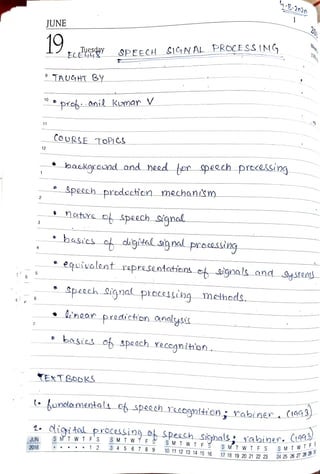 4-8-2020
JUNE
19 Tuesday
ECE448 SPEECH SIGNAL PROCESSING
• TAUGHT BY
10 • prof. anil kumar V
11
COURSE TOPICS
12
• background and need for speech processing
1
• speech production mechanism
2
• nature of speech signal
3
• basics of digital signal processing
4
• equivalent representations of signals and systems
5
• speech signal processing methods.
6
• linear prediction analysis
7
• basics of speech recognition.
TEXTBOOKS
1. fundamentals of speech recognition; rabiner. (1993)
2. digital processing of speech signals; rabiner. (1993)
JUN S M T W T F S S M T W T F S S M T W T F S S M T W T F S S M T W T F S
2018 • • • • • 1 2 3 4 5 6 7 8 9 10 11 12 13 14 15 16 17 18 19 20 21 22 23 24 25 26 27 28 29 30